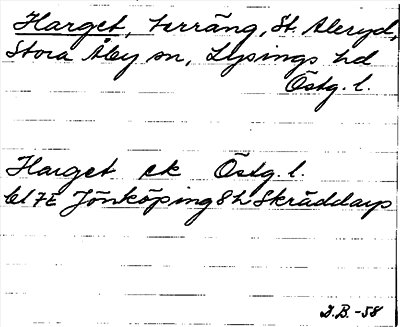 Harget, terräng, St. Aleryd,
Stora Åby sn, Lysings hd
Östg. l.
Harget ek Östg. l.
bl 7E Jönköping 8h Skräddarp
I.B. -58